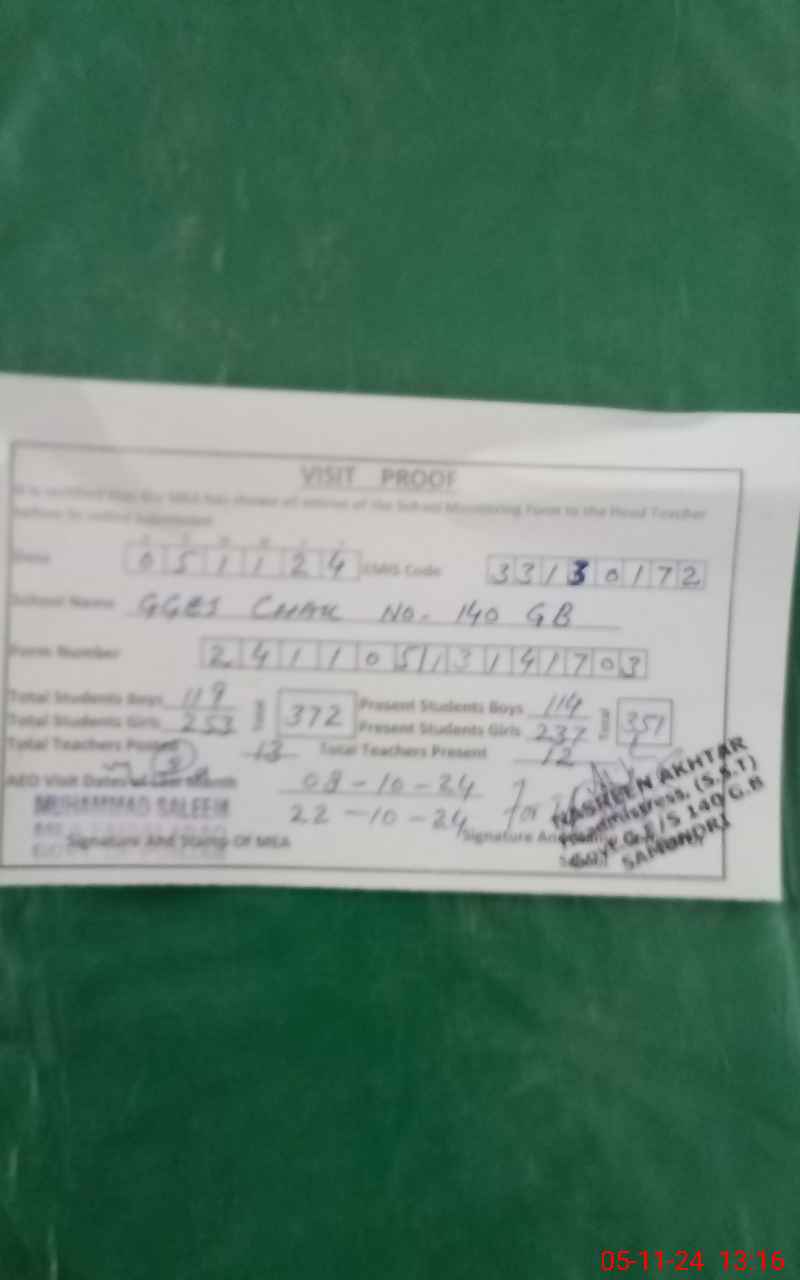 VISIT PROOF
It is certified that the MEA has shown all entries of the School Monitoring Form to the Head Teacher
before its online submission
Date 051124 EMIS Code 33130172
School Name GGES CHAK NO. 140 GB
Form Number 24110513141703
Total Students Boys 119 372 Present Students Boys 114 351
Total Students Girls 253 Present Students Girls 237
Total Teachers Posted 13 Total Teachers Present 12
AEO Visit Dates of Last Month 08-10-24
22-10-24
MUHAMMAD SALEEM
Signature And Stamp Of MEA
Signature And
NASREEN AKHTAR
Headmistress, (S.S.T)
Govt. G.E/S 140 G.B
SAMUNDRI
05-11-24 13:16